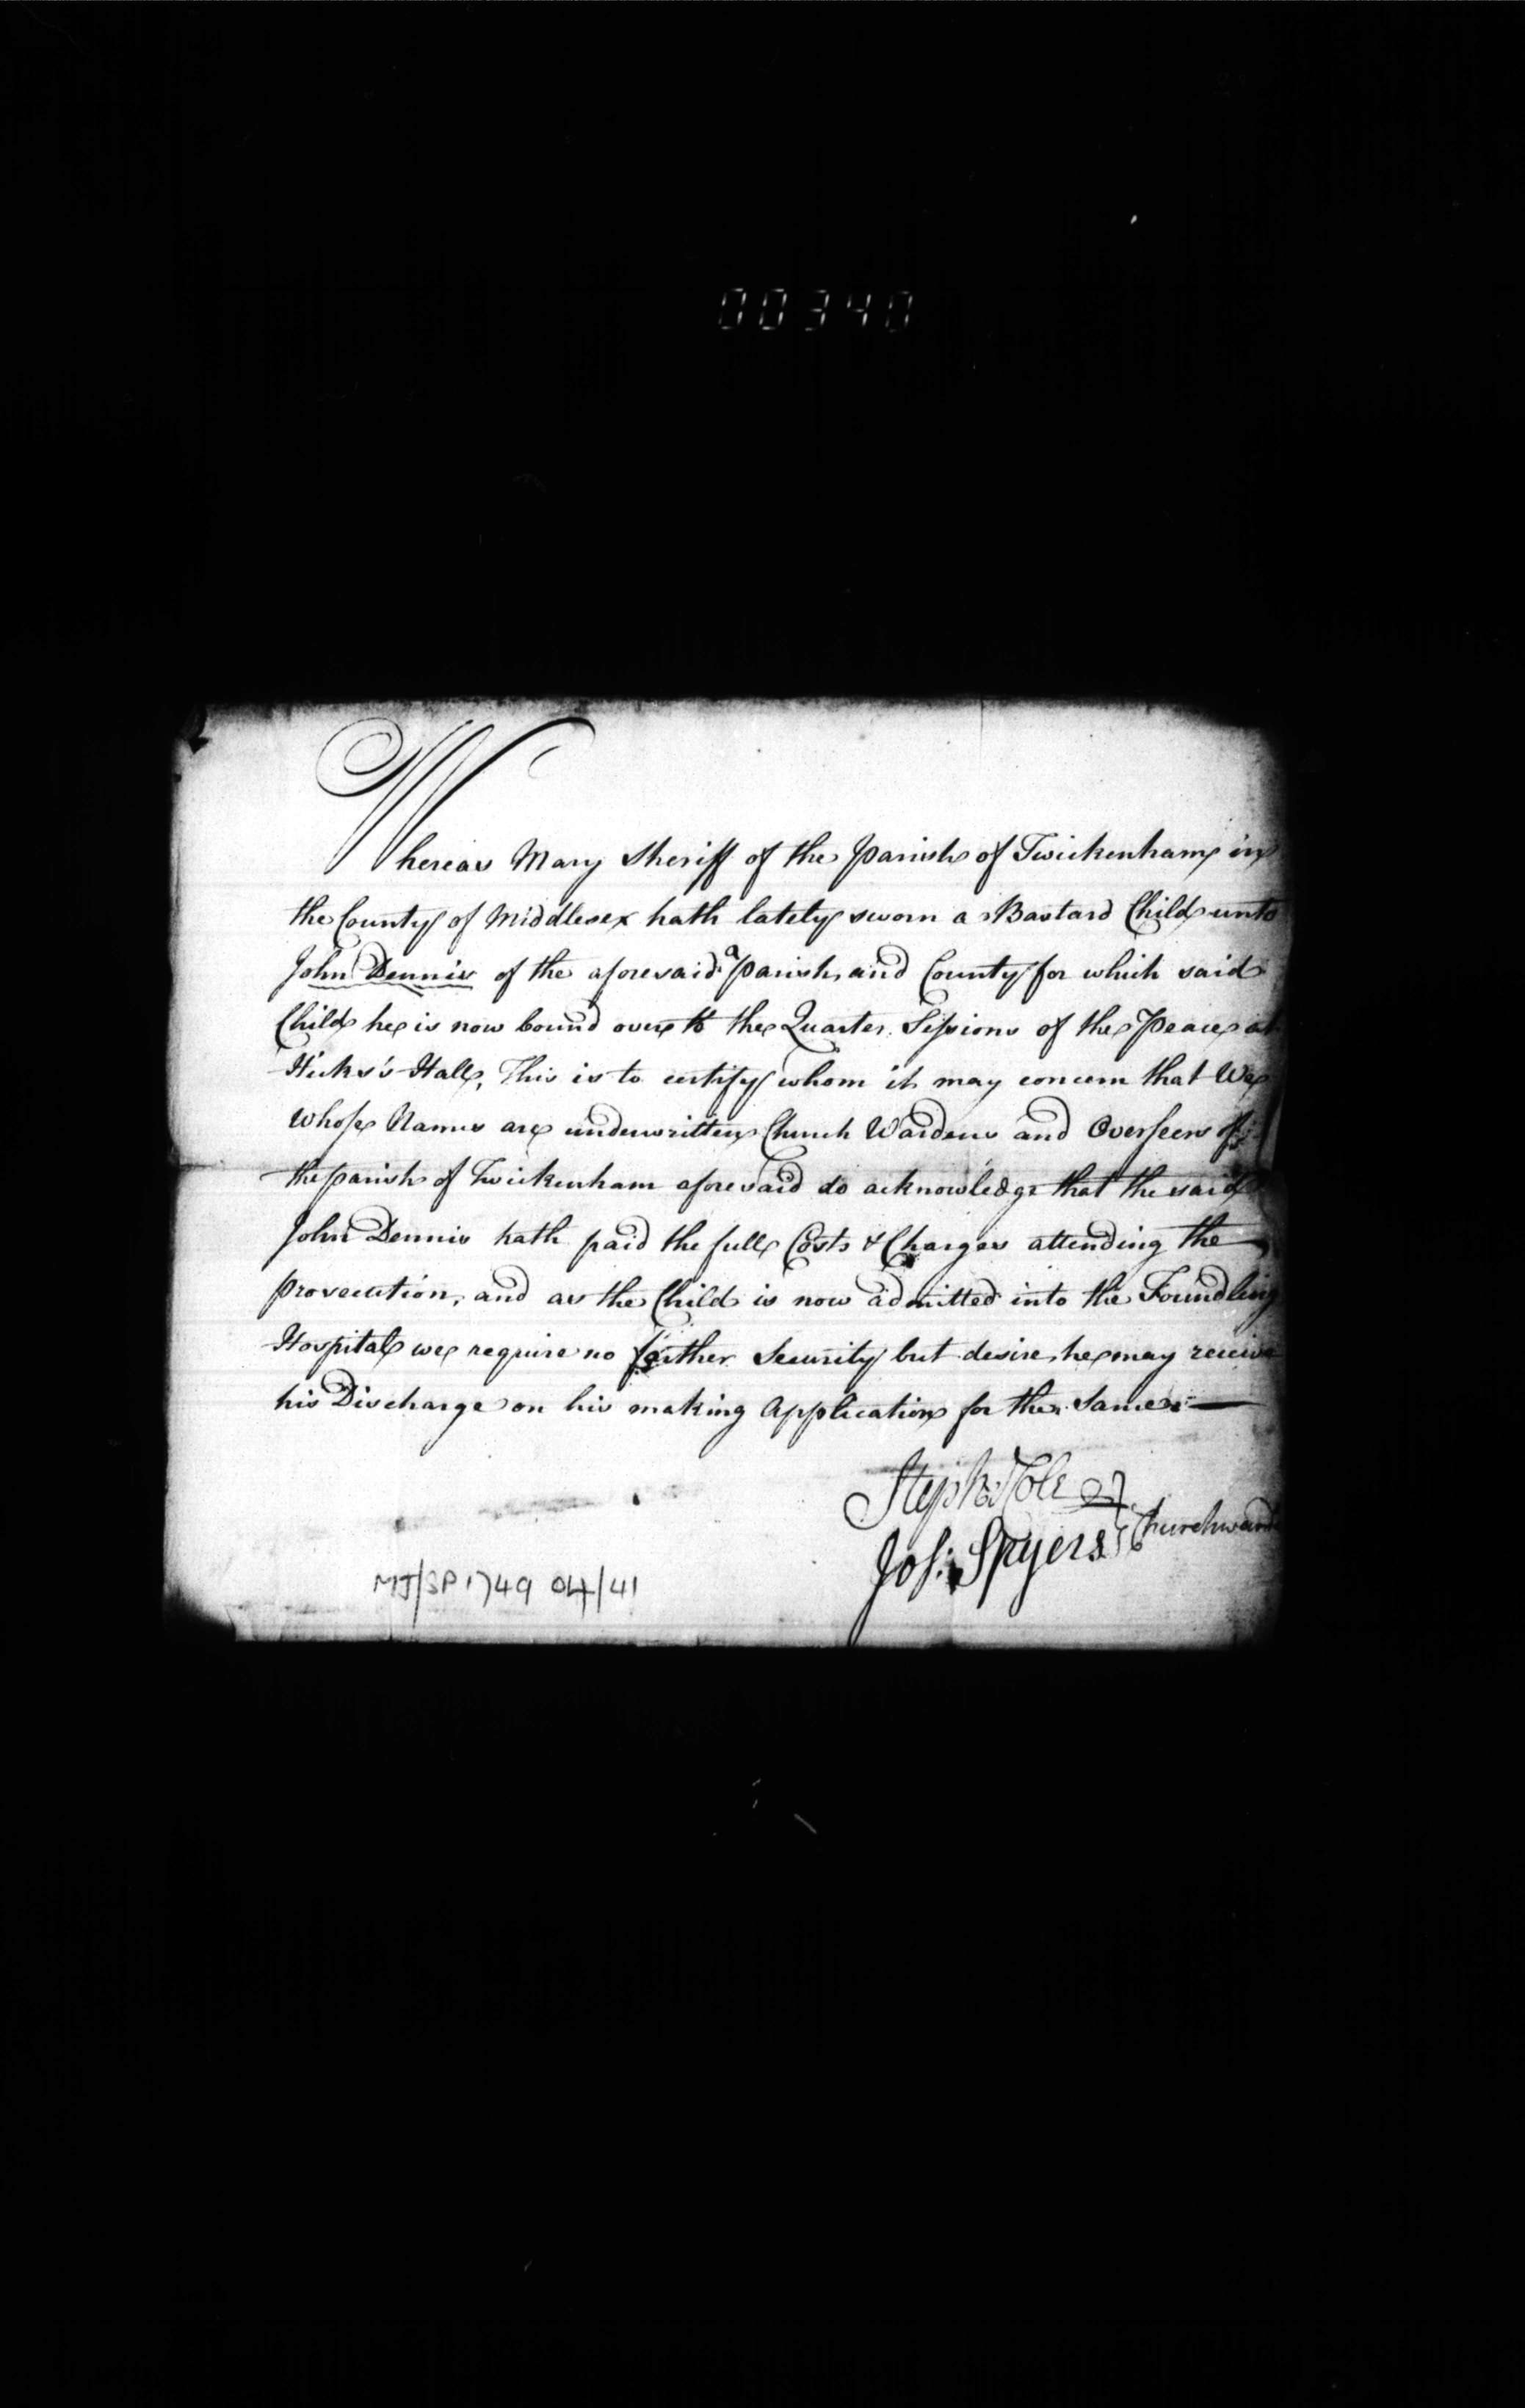 00340
Whereas Mary Sheriff of the Parish of Twickenham in
the County of Middlesex hath lately sworn a Bastard Child unto
John Dennis of the aforesaid Parish and County for which said
Child he is now bound over to the Quarter Sessions of the Peace at
Hicks's Hall, This is to certify whom it may concern that We
whose Names are underwritten Church Wardens and Overseers of
the parish of Twickenham aforesaid do acknowledge that the said
John Dennis hath paid the full Costs & Charges attending the
prosecution, and as the Child is now admitted into the Foundling
Hospital we require no farther Security but desire he may receive
his Discharge on his making Application for the Same
Steph: Cole
Jos: Spyers
Churchward
MJ/SP 1749 04/41